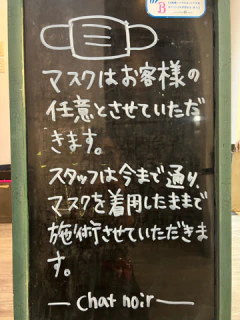 マスクはお客様の
任意とさせていただ
きます。
スタッフは今まで通り、
マスクを着用したままで
施術させていただきま
す。
chat noir